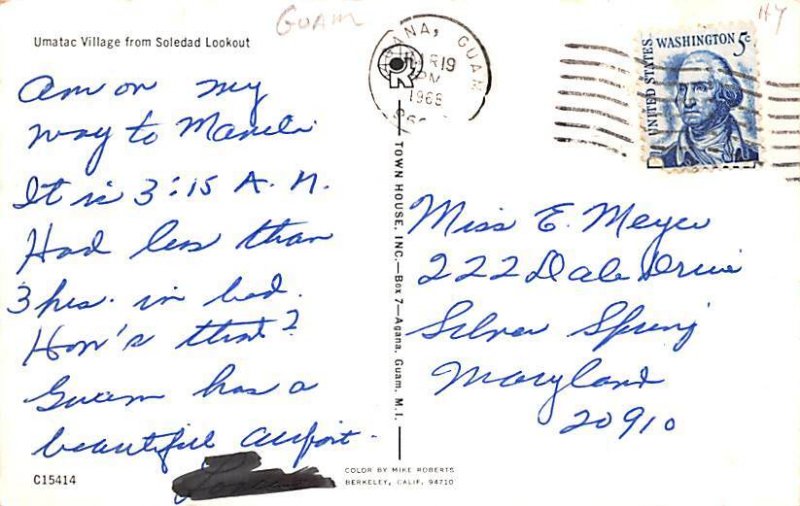 GUAM
HY
Umatac Village from Soledad Lookout
AGANA, GUAM
19
PM
1968
UNITED STATES
WASHINGTON 5c
Am on my
way to Manila
It is 3:15 A.M.
Had less than
3 hrs. in bed.
How's that?
Guam has a
beautiful airport.
TOWN HOUSE, INC.—Box 7—Agana, Guam, M.I.
Miss E. Meyer
222 Dale Drive
Silver Spring
Maryland
20910
C15414
COLOR BY MIKE ROBERTS
BERKELEY, CALIF. 94710